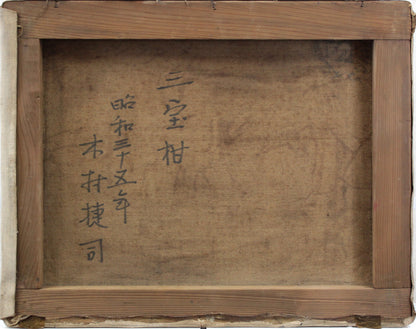 三宝柑
昭和三十五年
木村捷司